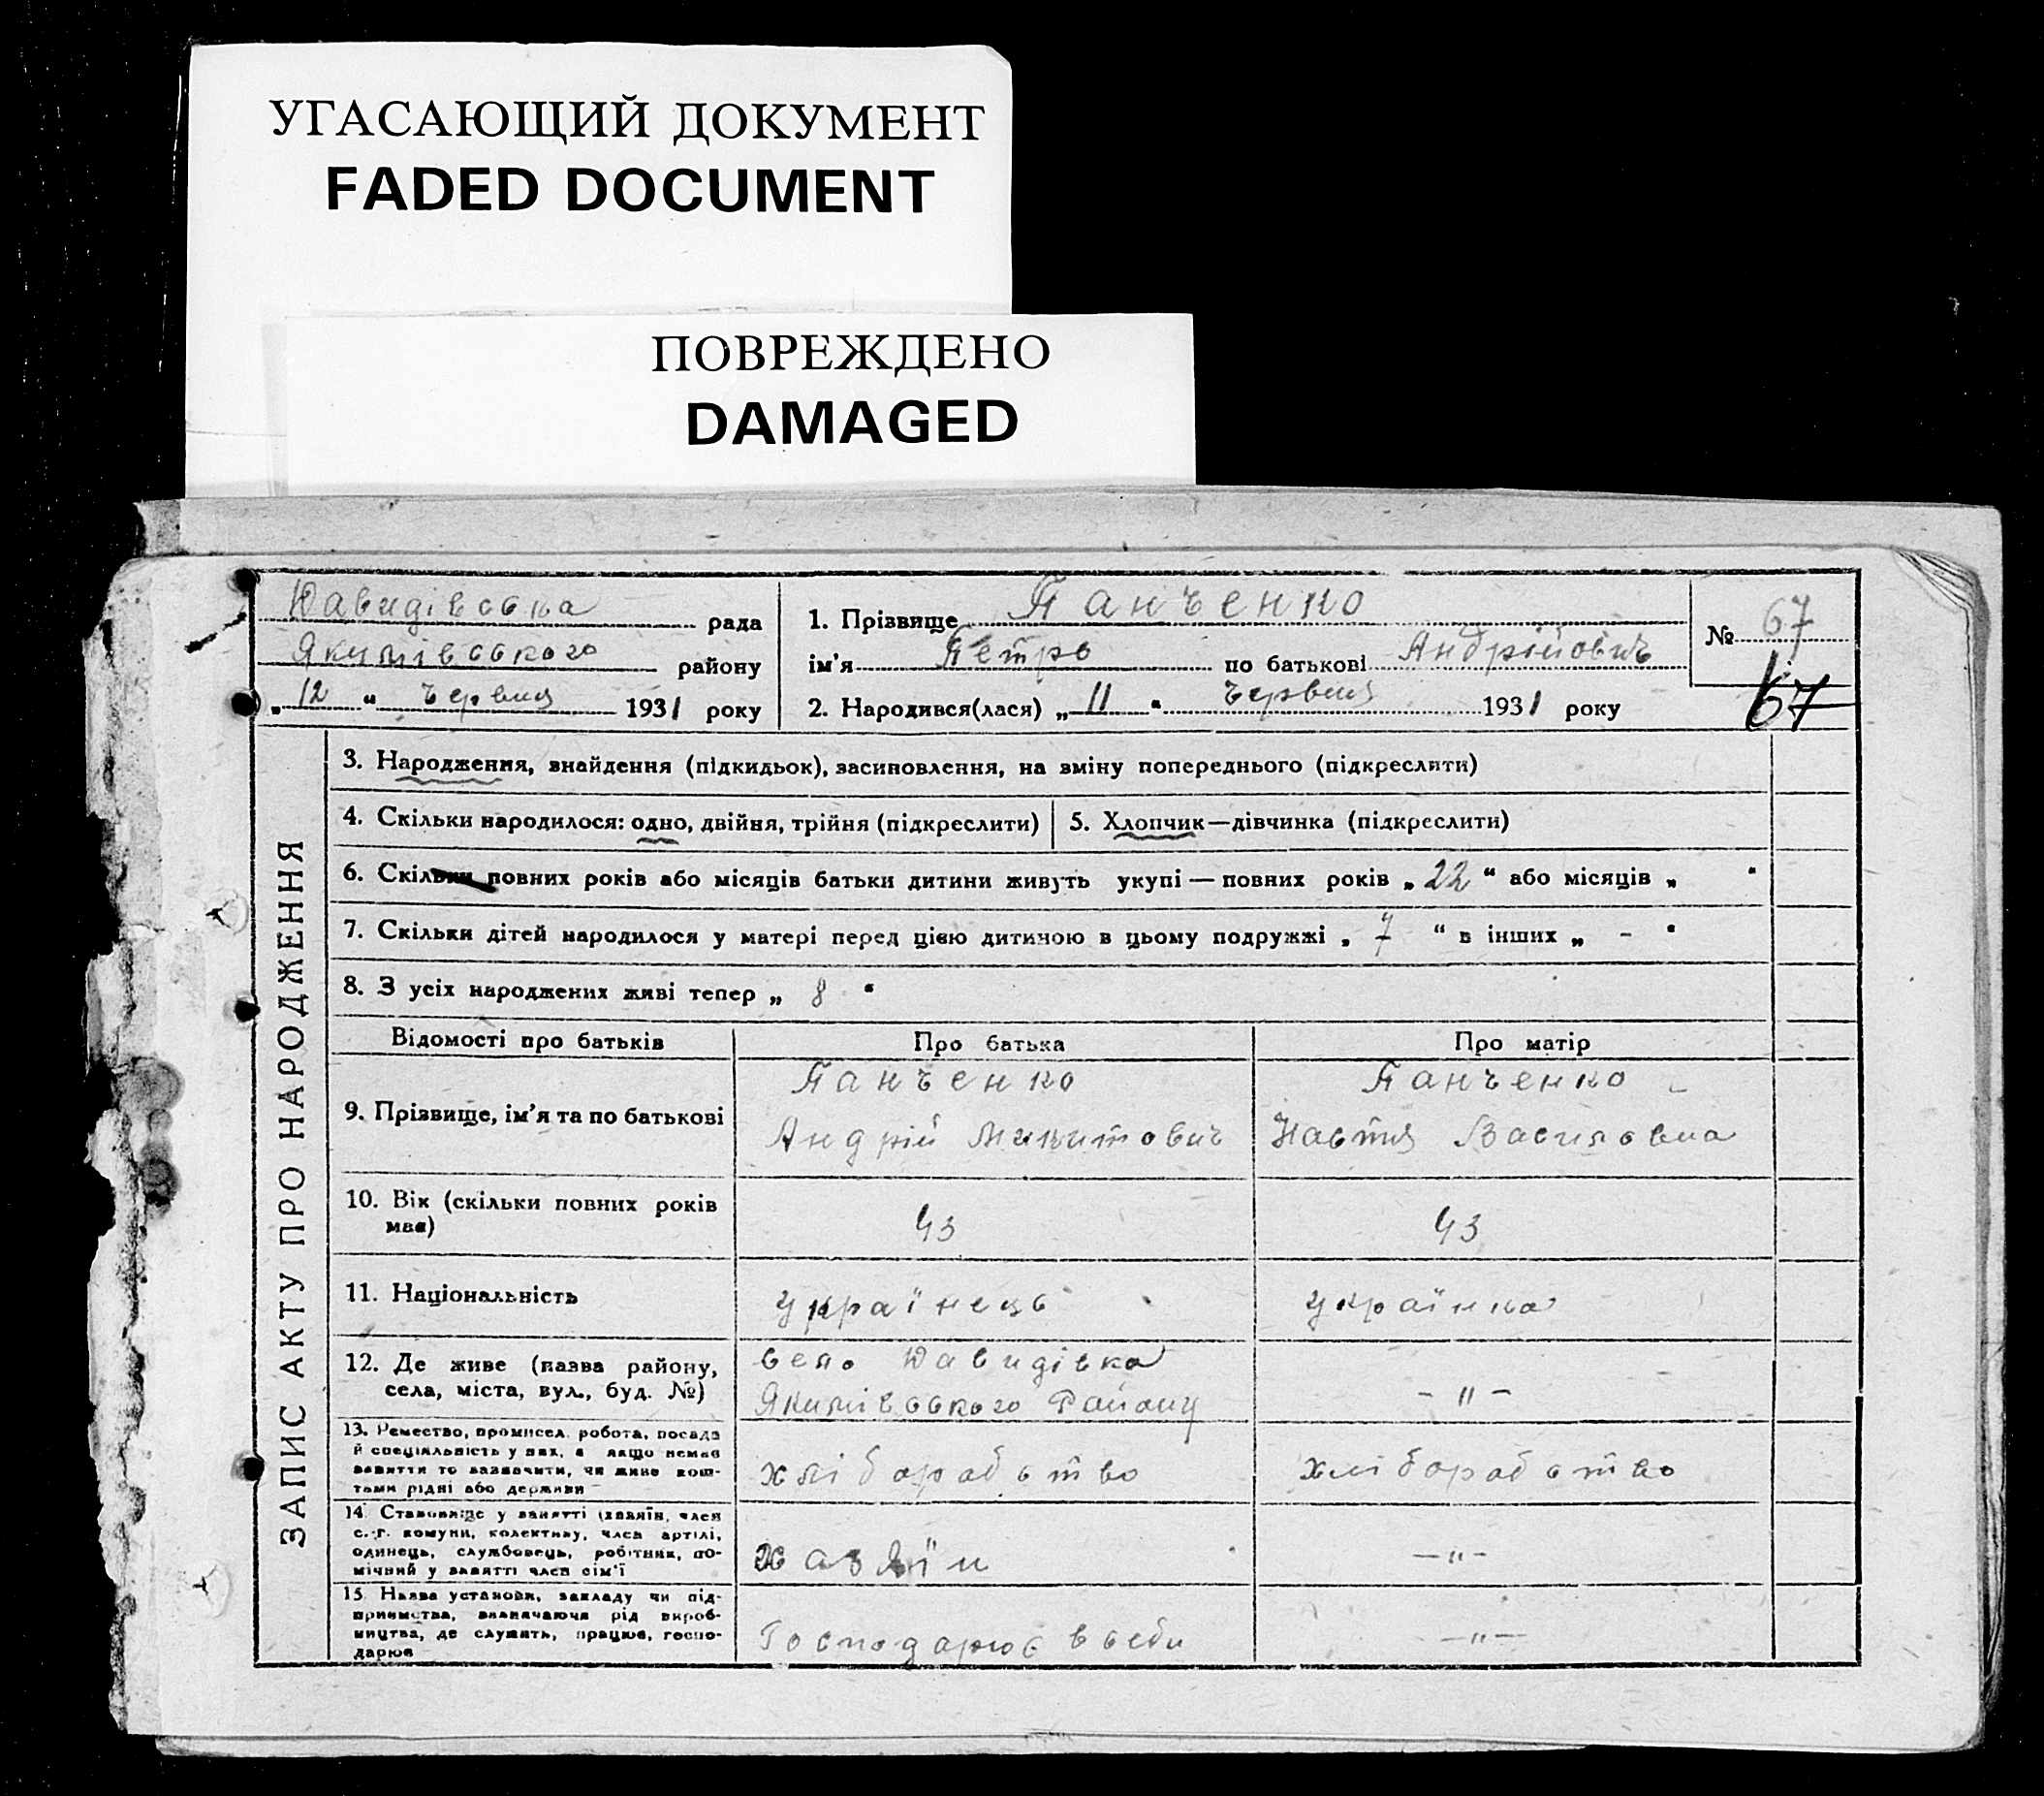 УГАСАЮЩИЙ ДОКУМЕНТ
FADED DOCUMENT
ПОВРЕЖДЕНО
DAMAGED
Давидівська рада
Якимівського району
„ 12 “ Червня 1931 року
1. Прізвище Панченко
ім'я Петро по батькові Андрійович
2. Народився(лася) „ 11 “ Червня 1931 року
№ 67
67
ЗАПИС АКТУ ПРО НАРОДЖЕННЯ
3. Народження, знайдення (підкидьок), засиновлення, на зміну попереднього (підкреслити)
4. Скільки народилося: одно, двійня, трійня (підкреслити)
5. Хлопчик—дівчинка (підкреслити)
6. Скільки повних років або місяців батьки дитини живуть укупі — повних років „ 22 “ або місяців „ “
7. Скільки дітей народилося у матері перед цією дитиною в цьому подружжі „ 7 “ в інших „ - “
8. З усіх народжених живі тепер „ 8 “
Відомості про батьків
Про батька
Про матір
9. Прізвище, ім'я та по батькові
Панченко
Андрій Микитович
Панченко
Настя Василовна
10. Вік (скільки повних років
має)
43
43
11. Національність
Українець
Українка
12. Де живе (назва району,
села, міста, вул., буд. №)
село Давидівка
Якимівського Району
- " -
13. Ремество, промисел, робота, посада
й спеціяльність у них, а якщо немає
заняття то зазначити, чи живе кош-
тами рідні або держави
хліборобство
хліборобство
14. Становище у занятті (хазяїн, член
с.-г. комуни, колективу, член артілі,
одинець, службовець, робітник, по-
мічний у занятті член сім'ї
хазяїн
- " -
15. Назва установи, закладу чи під-
приємства, визначаючи рід вироб-
ництва, де служить, працює, госпо-
дарює
Господарює в себи
- " -